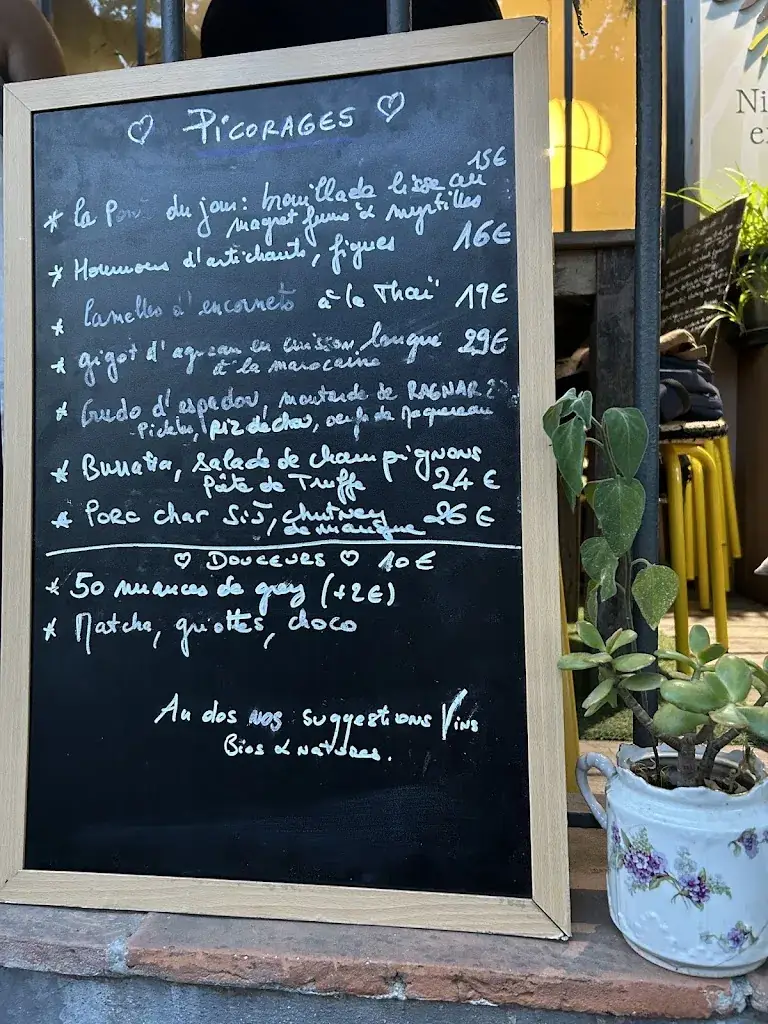 ♡ PICORAGES ♡
15€
* La du jour: brouillade lisse au
magret fumé & myrtilles
* Houmous d'artichauts, figues 16€
* Lamelles d'encornets à la Thaï 19€
* gigot d'agneau en cuisson longue 29€
à la marocaine
* Crudo d'espadon, moutarde de RAGNAR
Pickles, riz de chou, oeufs de maquereau
* Burrata, salade de champignons
Pâte de Truffe 24€
* Porc char Siu, chutney 26€
de mangue
♡ DOUCEURS ♡ 10€
* 50 nuances de grey (+2€)
* Matcha, griottes, choco
Au dos nos suggestions Vins
Bios & natures.
Ni
e